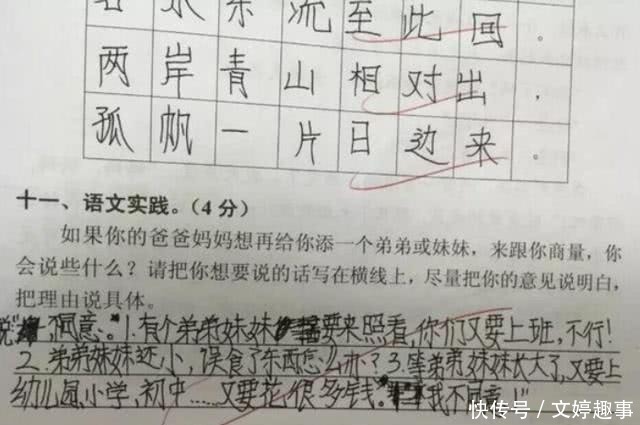 水东流至此回。
两岸青山相对出,
孤帆一片日边来。
十一、语文实践。(4分)
如果你的爸爸妈妈想再给你添一个弟弟或妹妹,来跟你商量,你
会说些什么?请把你想要说的话写在横线上,尽量把你的意见说明白,
把理由说具体。
说 不同意。1.有个弟弟妹妹 要来照看,你们又要上班,不行!
2.弟弟妹妹还小,误食了东西怎么办?3.等弟弟妹妹长大了,又要上
幼儿园,小学,初中……又要花很多钱。我不同意!"
快传号/文婷趣事